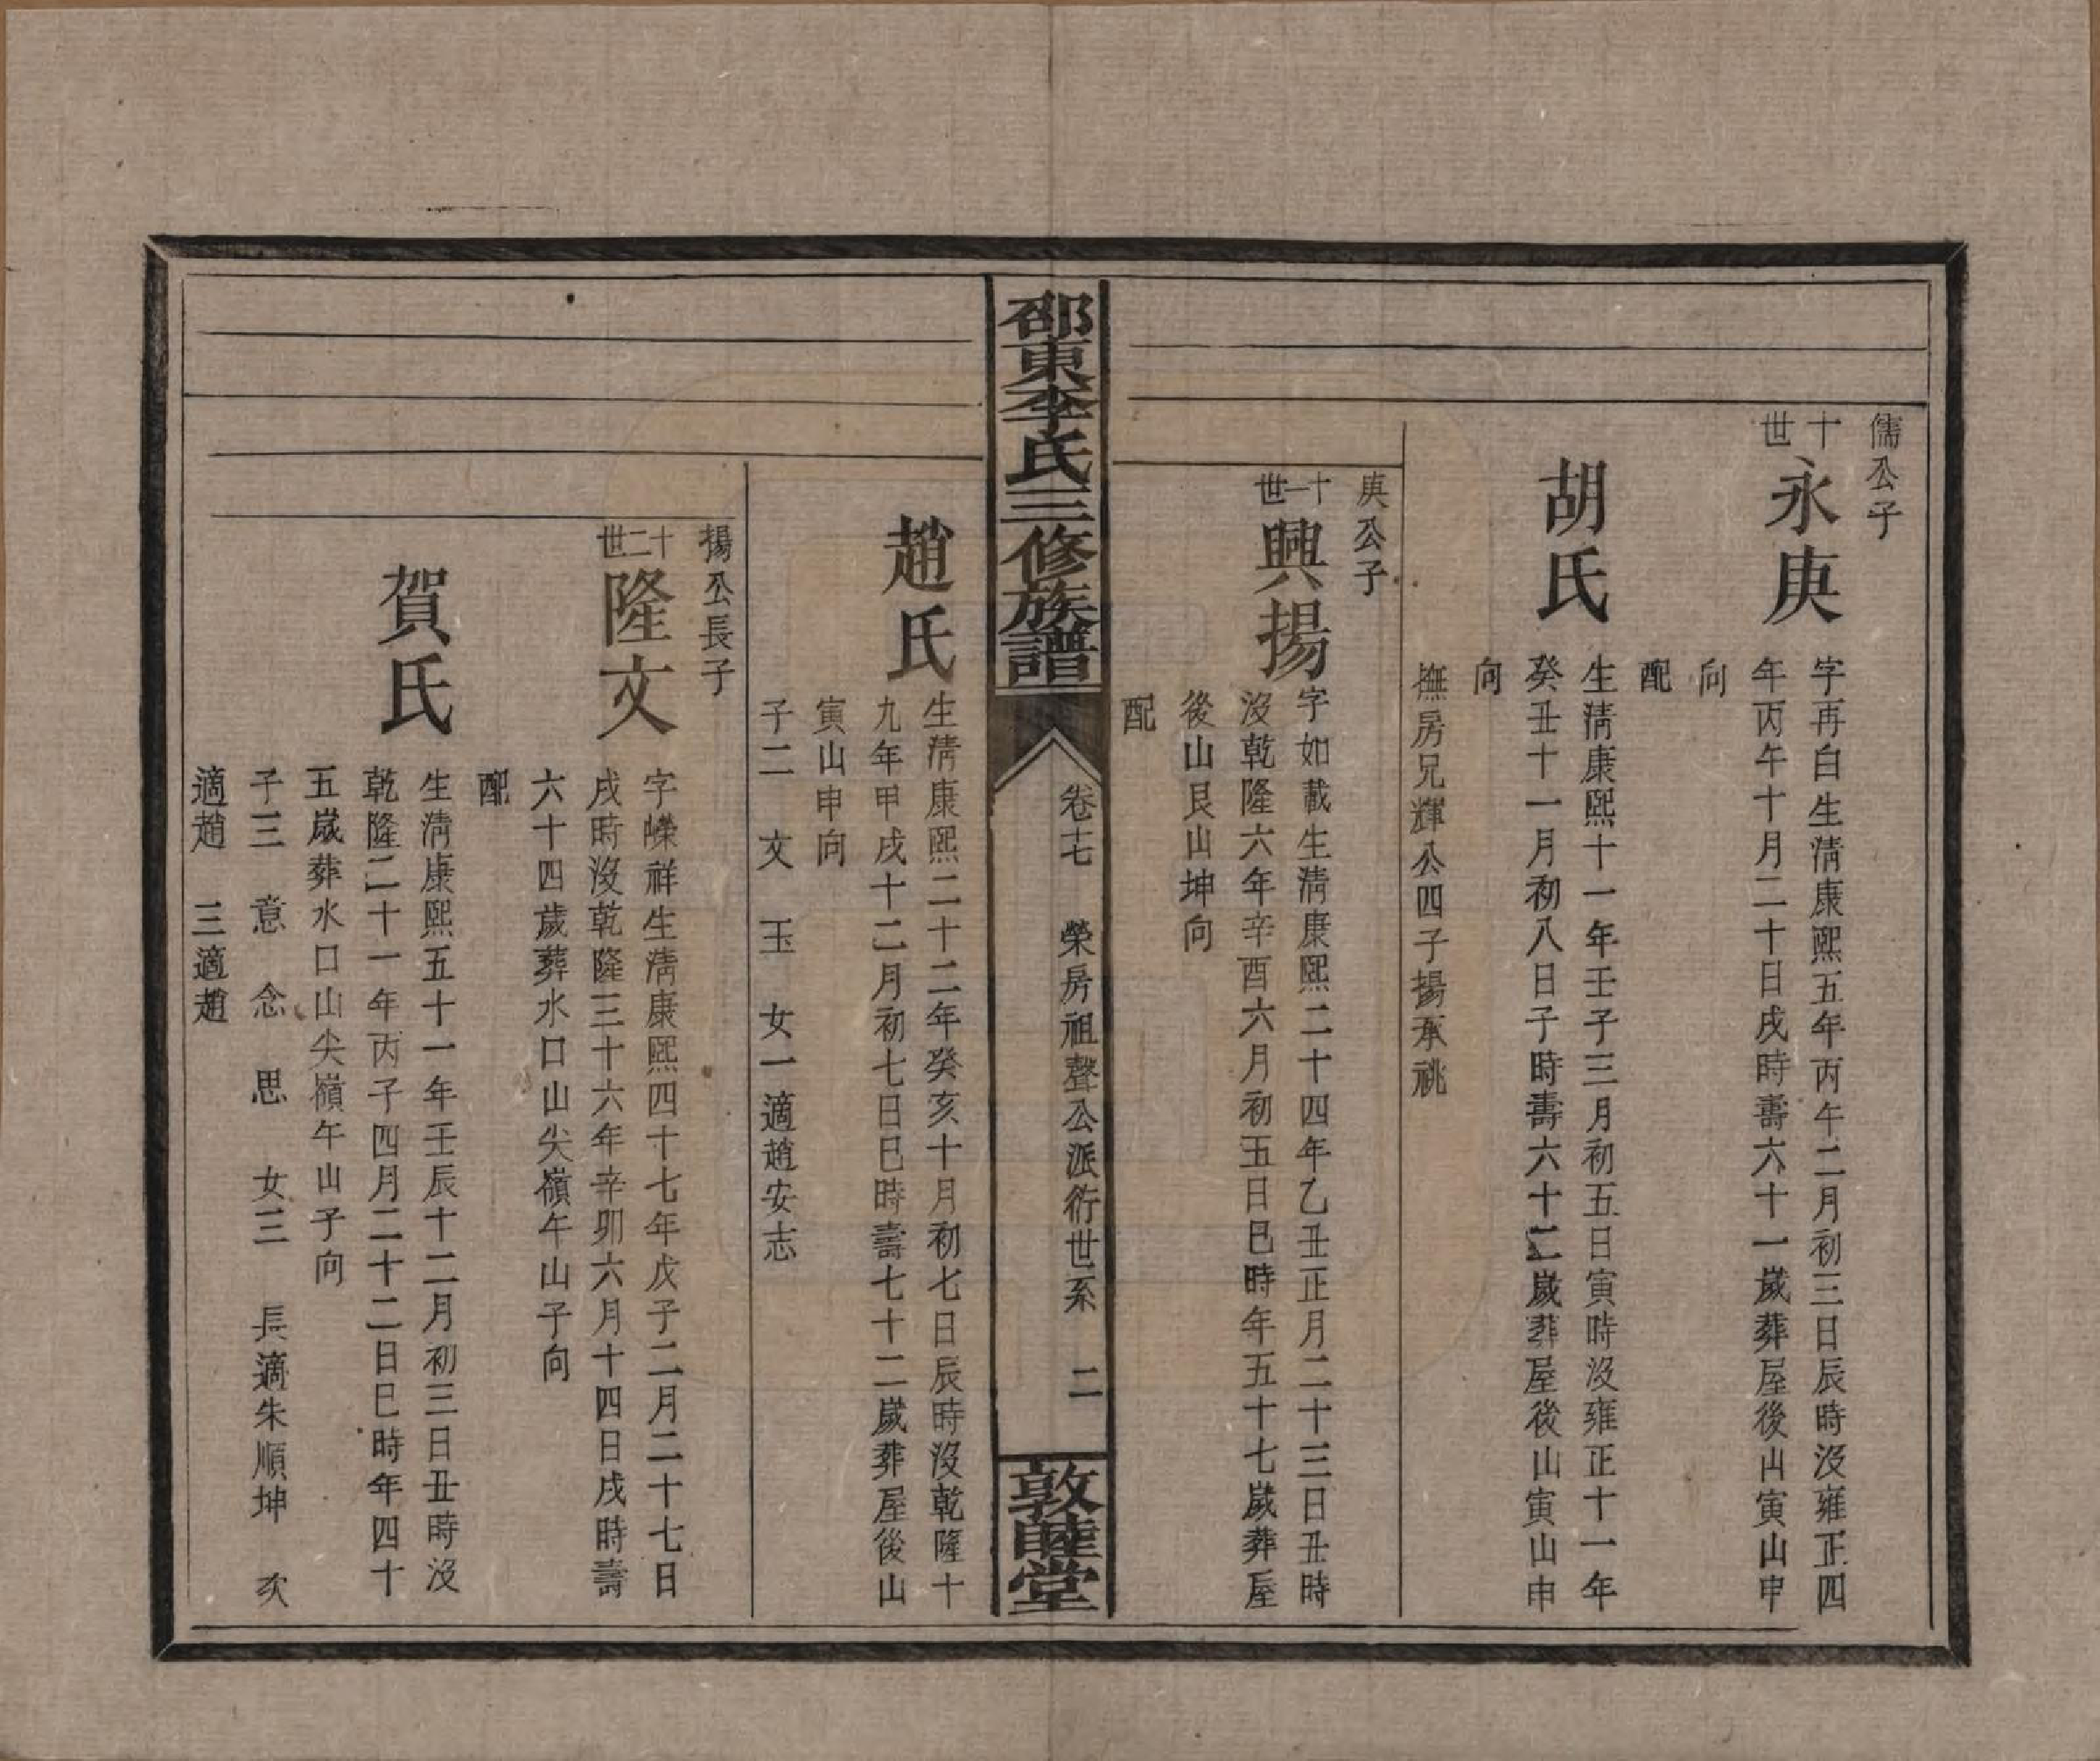 儒公子
十世
永庚
字再白生淸康熙五年丙午二月初三日辰時沒雍正四
年丙午十月二十日戌時壽六十一歲葬屋後山寅山申
向
配
胡氏
生淸康熙十一年壬子三月初五日寅時沒雍正十一年
癸丑十一月初八日子時壽六十二歲葬屋後山寅山申
向
撫房兄輝公四子揚承祧
庚公子
十一世
興揚
字如載生淸康熙二十四年乙丑正月二十三日丑時
沒乾隆六年辛酉六月初五日巳時年五十七歲葬屋
後山艮山坤向
配
邵東李氏三修族譜
卷十七 榮房祖聲公派衍世系 二
敦睦堂
趙氏
生淸康熙二十二年癸亥十月初七日辰時沒乾隆十
九年甲戌十二月初七日巳時壽七十二歲葬屋後山
寅山申向
子二 文 玉 女一適趙安志
揚公長子
十二世
隆文
字嶸祥生淸康熙四十七年戊子二月二十七日
戌時沒乾隆三十六年辛卯六月十四日戌時壽
六十四歲葬水口山尖嶺午山子向
配
賀氏
生淸康熙五十一年壬辰十二月初三日丑時沒
乾隆二十一年丙子四月二十二日巳時年四十
五歲葬水口山尖嶺午山子向
子三 意 念 思 女三 長適朱順坤 次
適趙 三適趙